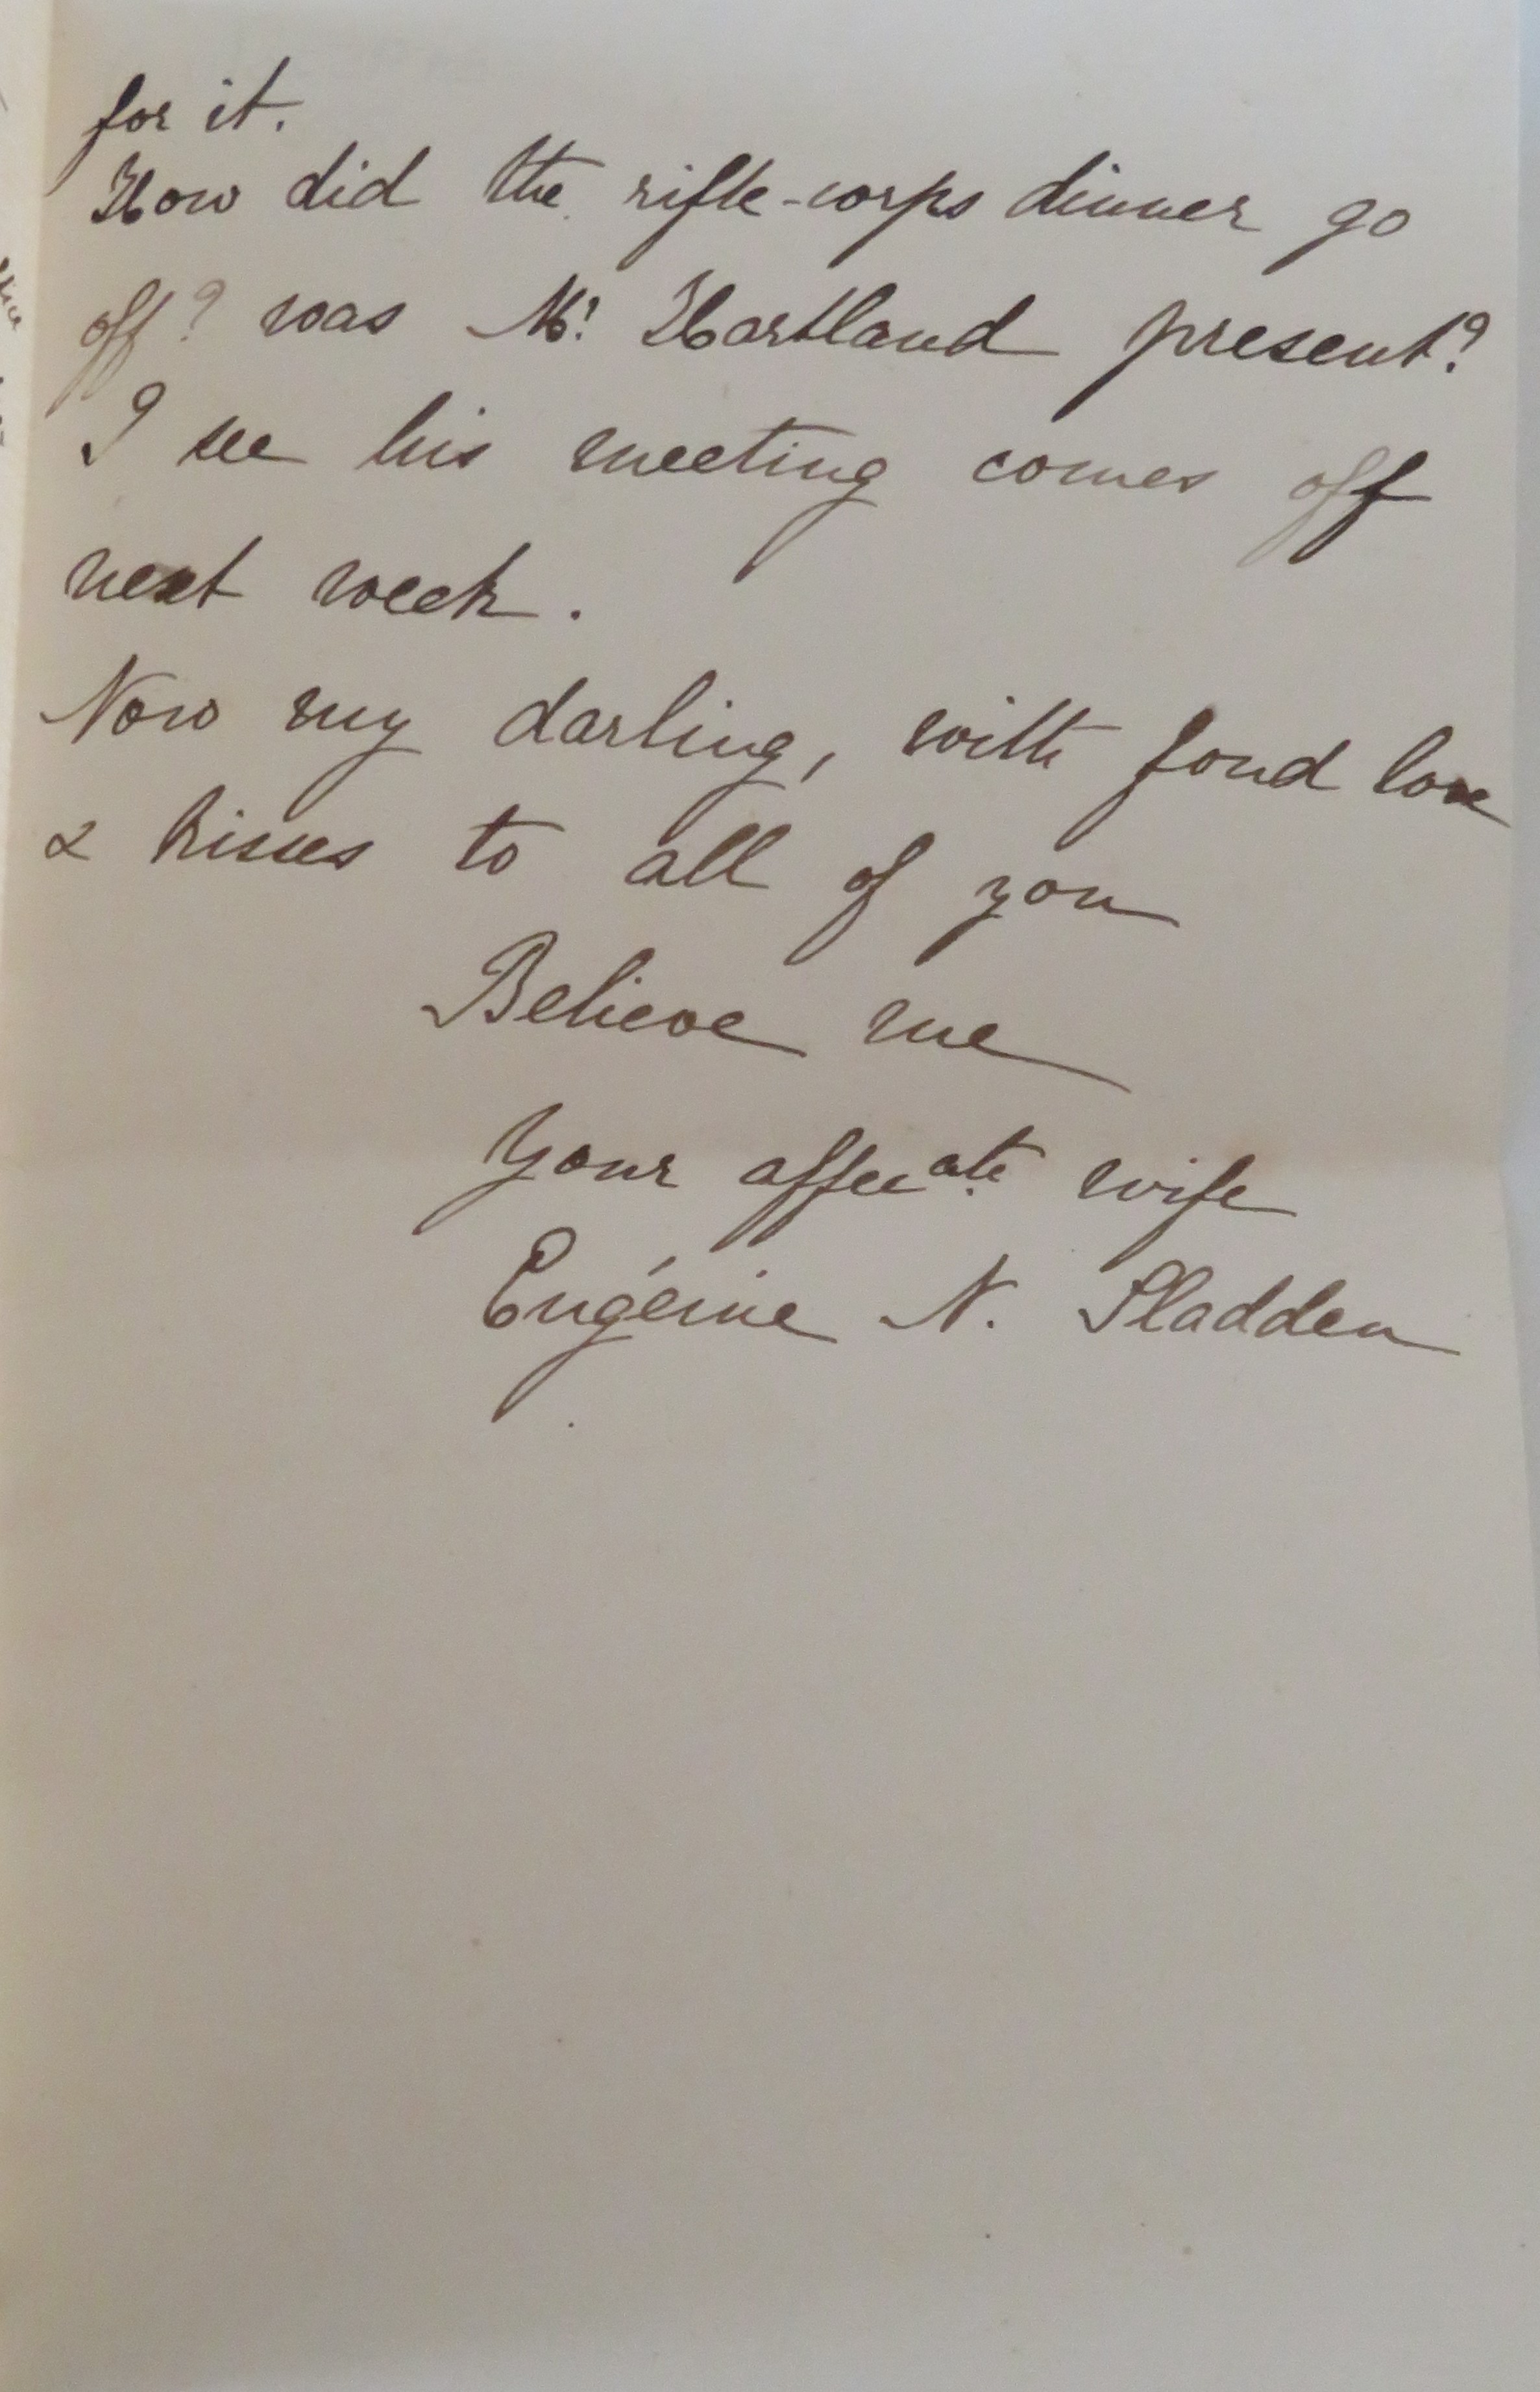 for it.
How did the rifle-corps dinner go
off? was Mr. Hartland present?
I see his meeting comes off
next week.
Now my darling, with fond love
& kisses to all of you
Believe me
Your affecate. wife
Eugénie N. Sladden